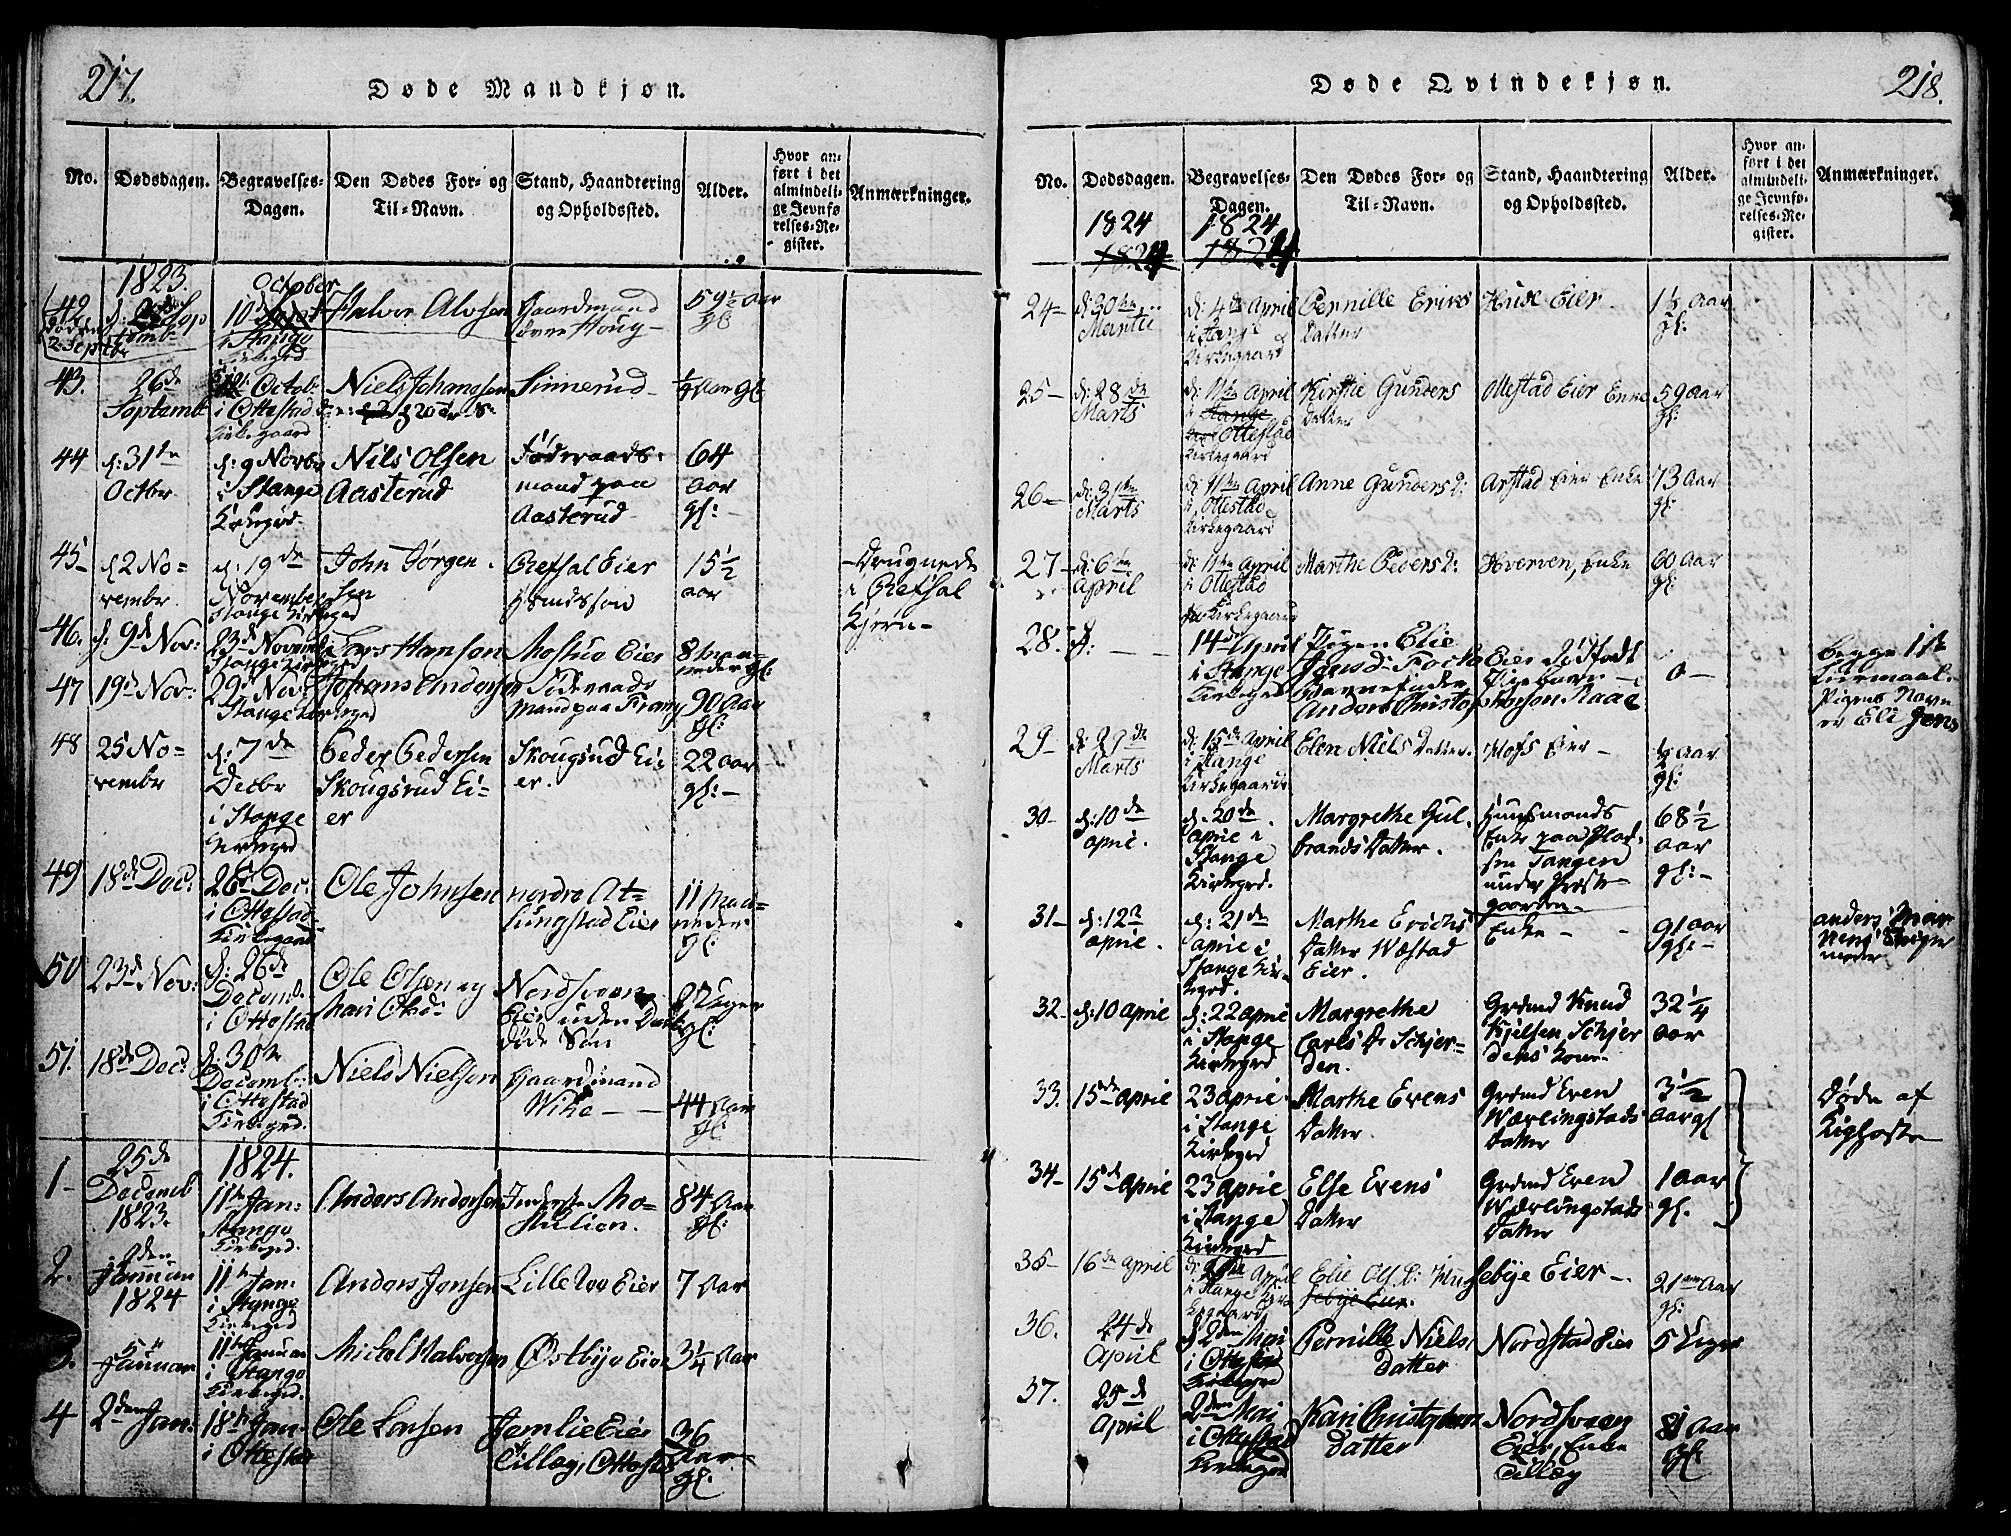 217.
Døde Mandkjøn.
No.
Dødsdagen.
Begravelses-
Dagen.
Den Dødes For- og
Til-Navn.
Stand, Haandtering
og Opholdssted.
Alder.
Hvor an-
ført i det
almindeli-
ge Jevnfø-
relses-Re-
gister.
Anmærkninger.
1823.
42
October
10d
i Stange
Kirkegrd
Halvor Alvsen
Gaardmand
over Houg
59½ Aar
gl
43.
26de
Septemb
Octob
i Ottestad
Kirkegaard
Niels Johannsen
Sinnerud
½ Aar gl
44
d: 31te
Octbr
d: 9 Novbr
i Stange
Kirkegrd
Nils Olsen
Aasterud
Føderaads-
mand paa
Aasterud
64
aar
gl:
45-
d 2 No-
vembr
d: 19de
November
Stange Kirkegrd
John Jørgen-
sen
Refsal Eier
15½
aar
Drugnede
i Refsal
Kjern
46.
d: 9d Nov:
23d Novemb
Stange Kirkegrd
Lars Hansen
Mostue Eier
8 Maa-
neder gl:
47
19d Nov:
29d Nov:
Stange Kirkegrd
Johans Andersen
Føderaads
Mand paa Frang
90 Aar
gl:
48
25 No-
vembr
d: 7de
Decbr
i Stange
Kirkegrd
Peder Pedersen
Skougsrud Ei-
er
Skougsrud Ei-
er.
22 aar
gl:-
49
18d Dec:
26d Dec:
i Ottestad
Kirkegaard
Ole Johnsen
nordre At-
lungstad Eier
11 Maa-
neder
gl:
50
23d Nov:
d: 26de
Decemb.
i Ottestad
Ole Olsen og
Mari Olsd:
Nordsveen
Eier uden Daab
døde Søn
2 Uger
gl:
51.
18de Dec:
d: 30te
Decemb:
i Ottestad
Kirkegrd.
Niels Nielsen
Gaardmand
Wike
44 Aar
gl:
1824.
1-
25de
Decemb
1823.
11te Jan:
Stange
Kirkegrd.
Anders Andersen
84 Aar
gl:
2.
Januar
1824
11te Jan:
i Stange
Kirkegrd
Anders Jensen
Lille Eier
7 Aar
3.
5
Januar
11te Januar
i Stange
Kirkegrd.
Mickel Halvorsen
Østbye Eier
3¼ Aar
4
2den Jan:
18de Jan-
i Ottestad
Ole Larsen
Jemlie Eier
Tillæg, Ottestad
36
Aar
gl:
218.
Døde Qvindekjøn.
No.
Dødsdagen.
Begravelses-
Dagen.
Den Dødes For- og
Til-Navn.
Stand, Haandtering
og Opholdssted.
Alder.
Hvor an-
ført i det
almindeli-
ge Jevnfø-
relses-Re-
gister.
Anmærkninger.
1824
1824
1824
1824
24-
d: 30te
Martii
d: 4de April
i Stange
Kirkegaard
Pernille Erics
Datter
Huse Eier
1½ Aar
gl:
25-
d: 28de
Marts
d: 11te April
i Stange
Ottestad
Kirkegaard
Kirstie Gunders
Datter
Ollestad Eier Enke
59 Aar
gl:
26-
d: 31te
Marts
d: 11te April
i Ottestad
Kirkegaard
Anne Gunders D:
Arstad Eier Enke
73 Aar
gl:
27-
d: 6te
April
d: 11te April
i Ottestad
Kirkegaard
Marthe Peders D:
Hverven, Enke
60 Aar
gl:
28.
14de April
i Stange
Kirkegrd
Pigen Elie
Jens D:
Barnefader
Anders Christophersen Raae
Eier Dødfødt
0-
begge 1te
Leiermaal.
Pigens Navn
er Eli Jens
29-
d: 27de
Marts
d: 15de April
i Stange
Kirkegaard
Elen Niels Datter.
Mohs Eier
½ Aar
gl:
30-
d: 10de
april.
d. 20de
april i
Stange
Kirkegrd.
Margrethe Gul-
brands Datter.
Huusmands
Enke paa Plad-
sen Tangen
under Præste-
gaarden.
68½
aar
gl:-
31-
d: 12te
april.
d: 21de
april i
Stange Kir-
kegrd.
Marthe Erichs
Datter Wæstad
Eier.
Enke
91 aar
gl:-
32.
d: 10 april
d: 22 april
i Stange
Kirkegrd
Margrethe
Carls D: Schjer-
den.
Grdmd Knud
Kjelsen Schjer
dens Kone
32¼
aar
33.
15de april
23 april
i Stange
Kirkegrd
Marthe Evens
Datter.
Grdmd Even
Wærlingstads
Datter
3½
aar gl
Døde af
Kighoste
34-
15d april
23 april
i Stange
Kirkegrd
Else Evens
Datter
Grdmd Even
Wærlingstads
Datter
1 aar
gl.
35-
16de April
April
i Stange
Elie Ols D: Husebye Eier
21 Aar
gl:
36.
24de
April
d 2den Mai
i Ottestad
Kirkegrd
Pernille Niels
Datter
Nordstad Eier
5 Uger
37.
25de
April
2den Mai
i Ottestad
Kirkegrd
Kari Christophers
Datter
Nordsveen
Eier, Enke
Tillæg
81 Aar
gl